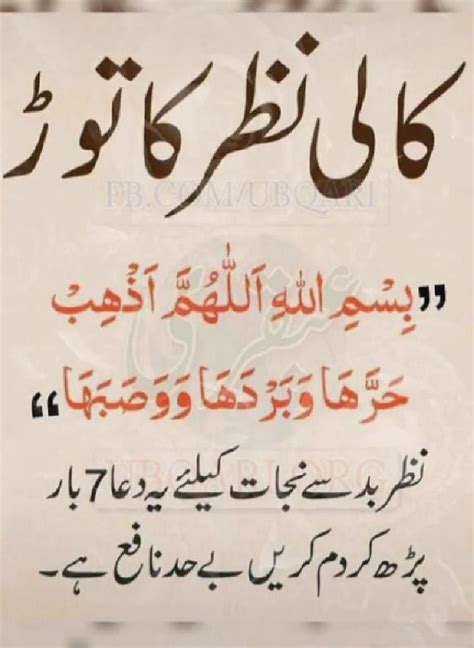 کالی نظر کا توڑ
FB.COM/UBQARI
عبقری
”بِسْمِ اللهِ اَللّٰهُمَّ اَذْهِبْ
حَرَّهَا وَبَرْدَهَا وَوَصَبَهَا“
UBQARI.ORG
نظر بد سے نجات کیلئے یہ دعا 7 بار
پڑھ کر دم کریں بے حد نافع ہے۔